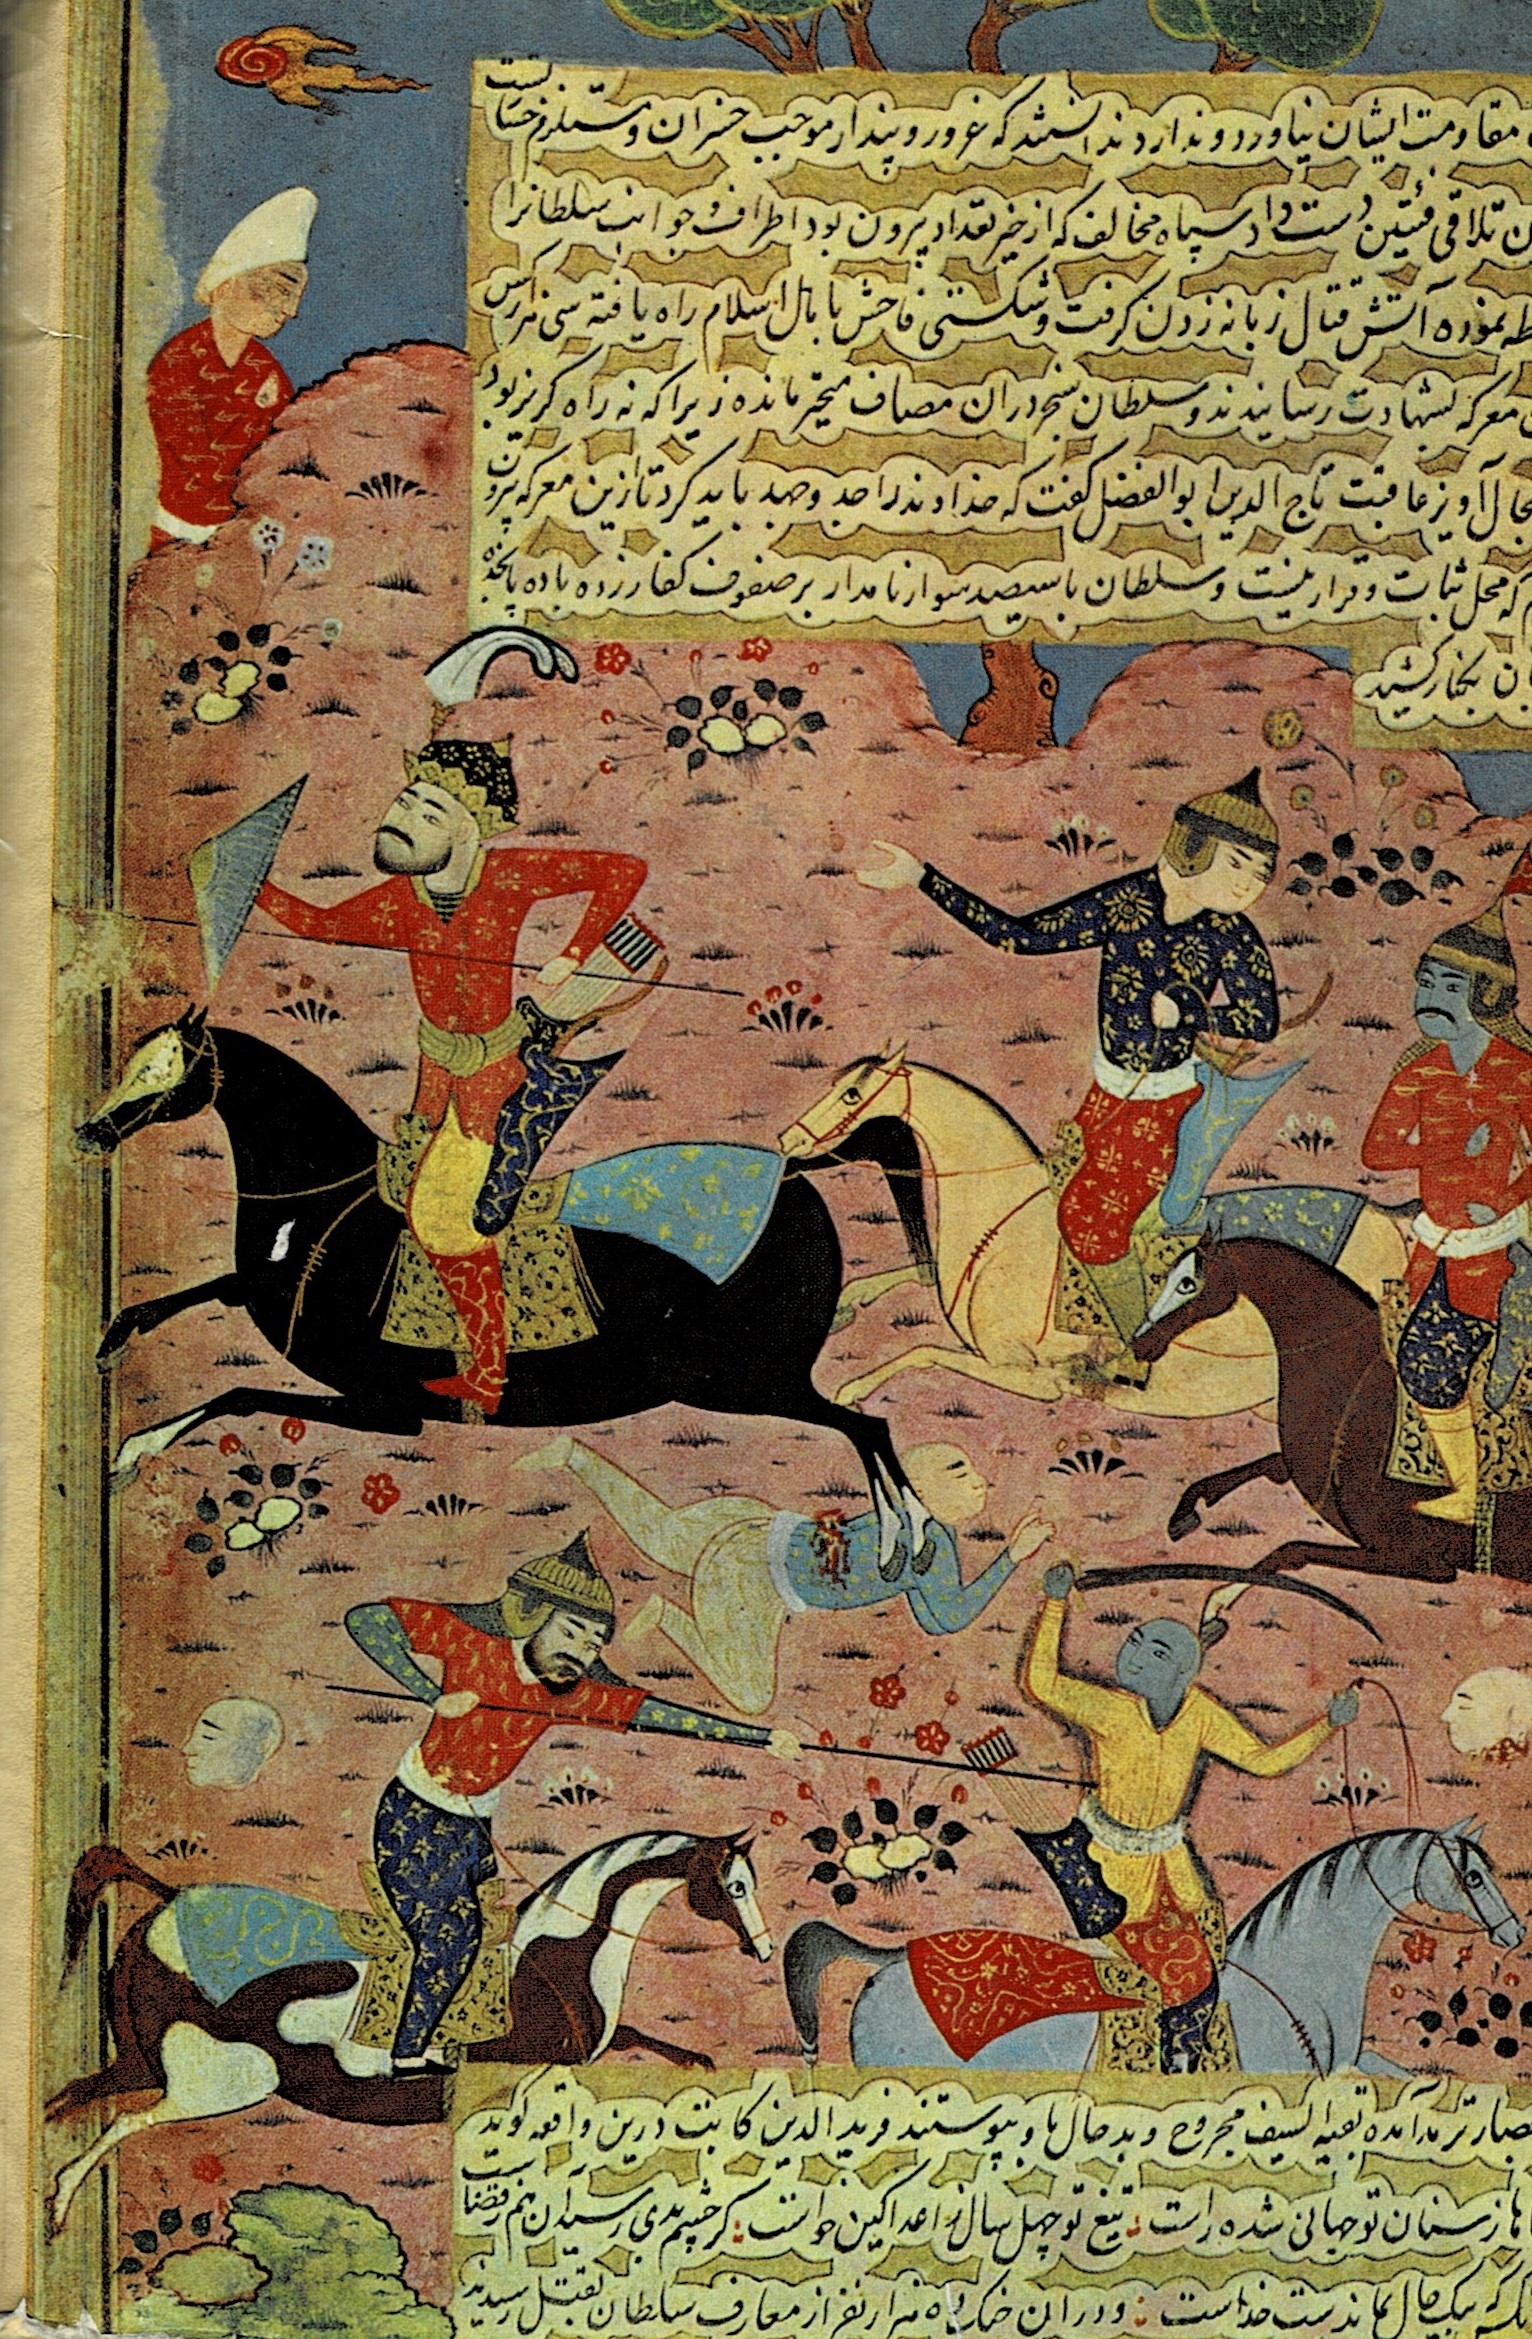 مقاومت ایشان نیاورد و ندارد ندانستند که غرور و پندار موجب خسران و مستلزم خسا‌ست
تلاقی فئتین دست داد سپاه مخالف که از حیز تعداد بیرون بود اطراف و جوانب سلطانرا
نموده آتش قتال زبانه زدن گرفت و شکستی فاحش باهل اسلام راه یافته سی هزار کس
معرکه بشهادت رسانیدند و سلطان سنجر دران مصاف متحیر مانده زیرا که نه راه گریز بود
مجال آویز عاقبت تاج الدین ابوالفضل گفت که خداوند را جد و جهد باید کرد تا ازین معرکه بیرون
که محل ثبات و قرار نیست و سلطان با سیصد سوار نامدار بر صفوف کفار زده با ده پانجده
کشید
ترمد آمده بقیه السیف مجروح و بد حال باو پیوستند فرید الدین کاتب درین واقعه گوید
از سنان تو جهانی شده راست تیغ تو چهل سال ز اعدا کین خواست گر چشم بدی رسید آن هم ز قضاست
که بیک حال بماندست خداست و دران جنک ده هزار نفر از معارف سلطان بقتل رسیدند